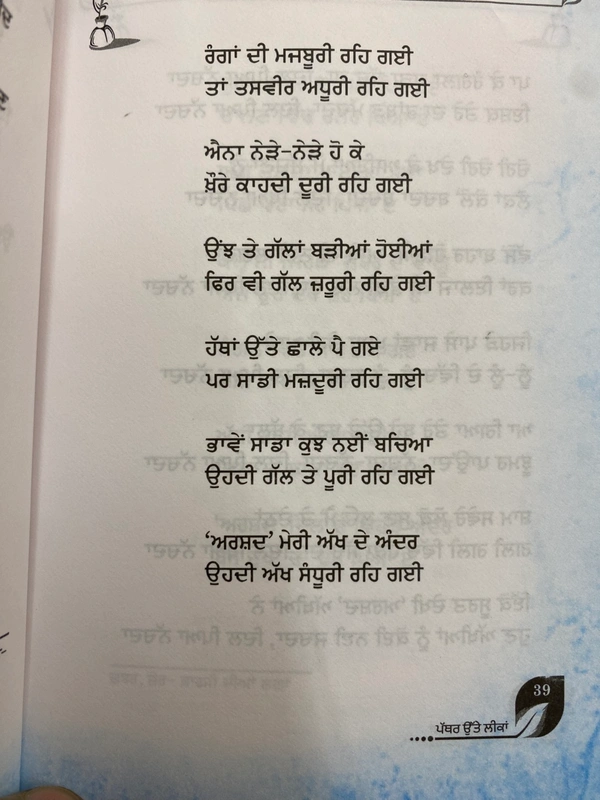 ਰੰਗਾਂ ਦੀ ਮਜਬੂਰੀ ਰਹਿ ਗਈ
ਤਾਂ ਤਸਵੀਰ ਅਧੂਰੀ ਰਹਿ ਗਈ
ਐਨਾ ਨੇੜੇ-ਨੇੜੇ ਹੋ ਕੇ
ਖ਼ੌਰੇ ਕਾਹਦੀ ਦੂਰੀ ਰਹਿ ਗਈ
ਉਂਝ ਤੇ ਗੱਲਾਂ ਬੜੀਆਂ ਹੋਈਆਂ
ਫਿਰ ਵੀ ਗੱਲ ਜ਼ਰੂਰੀ ਰਹਿ ਗਈ
ਹੱਥਾਂ ਉੱਤੇ ਛਾਲੇ ਪੈ ਗਏ
ਪਰ ਸਾਡੀ ਮਜ਼ਦੂਰੀ ਰਹਿ ਗਈ
ਭਾਵੇਂ ਸਾਡਾ ਕੁਝ ਨਈਂ ਬਚਿਆ
ਉਹਦੀ ਗੱਲ ਤੇ ਪੂਰੀ ਰਹਿ ਗਈ
‘ਅਰਸ਼ਦ’ ਮੇਰੀ ਅੱਖ ਦੇ ਅੰਦਰ
ਉਹਦੀ ਅੱਖ ਸੰਧੂਰੀ ਰਹਿ ਗਈ
39
ਪੱਥਰ ਉੱਤੇ ਲੀਕਾਂ